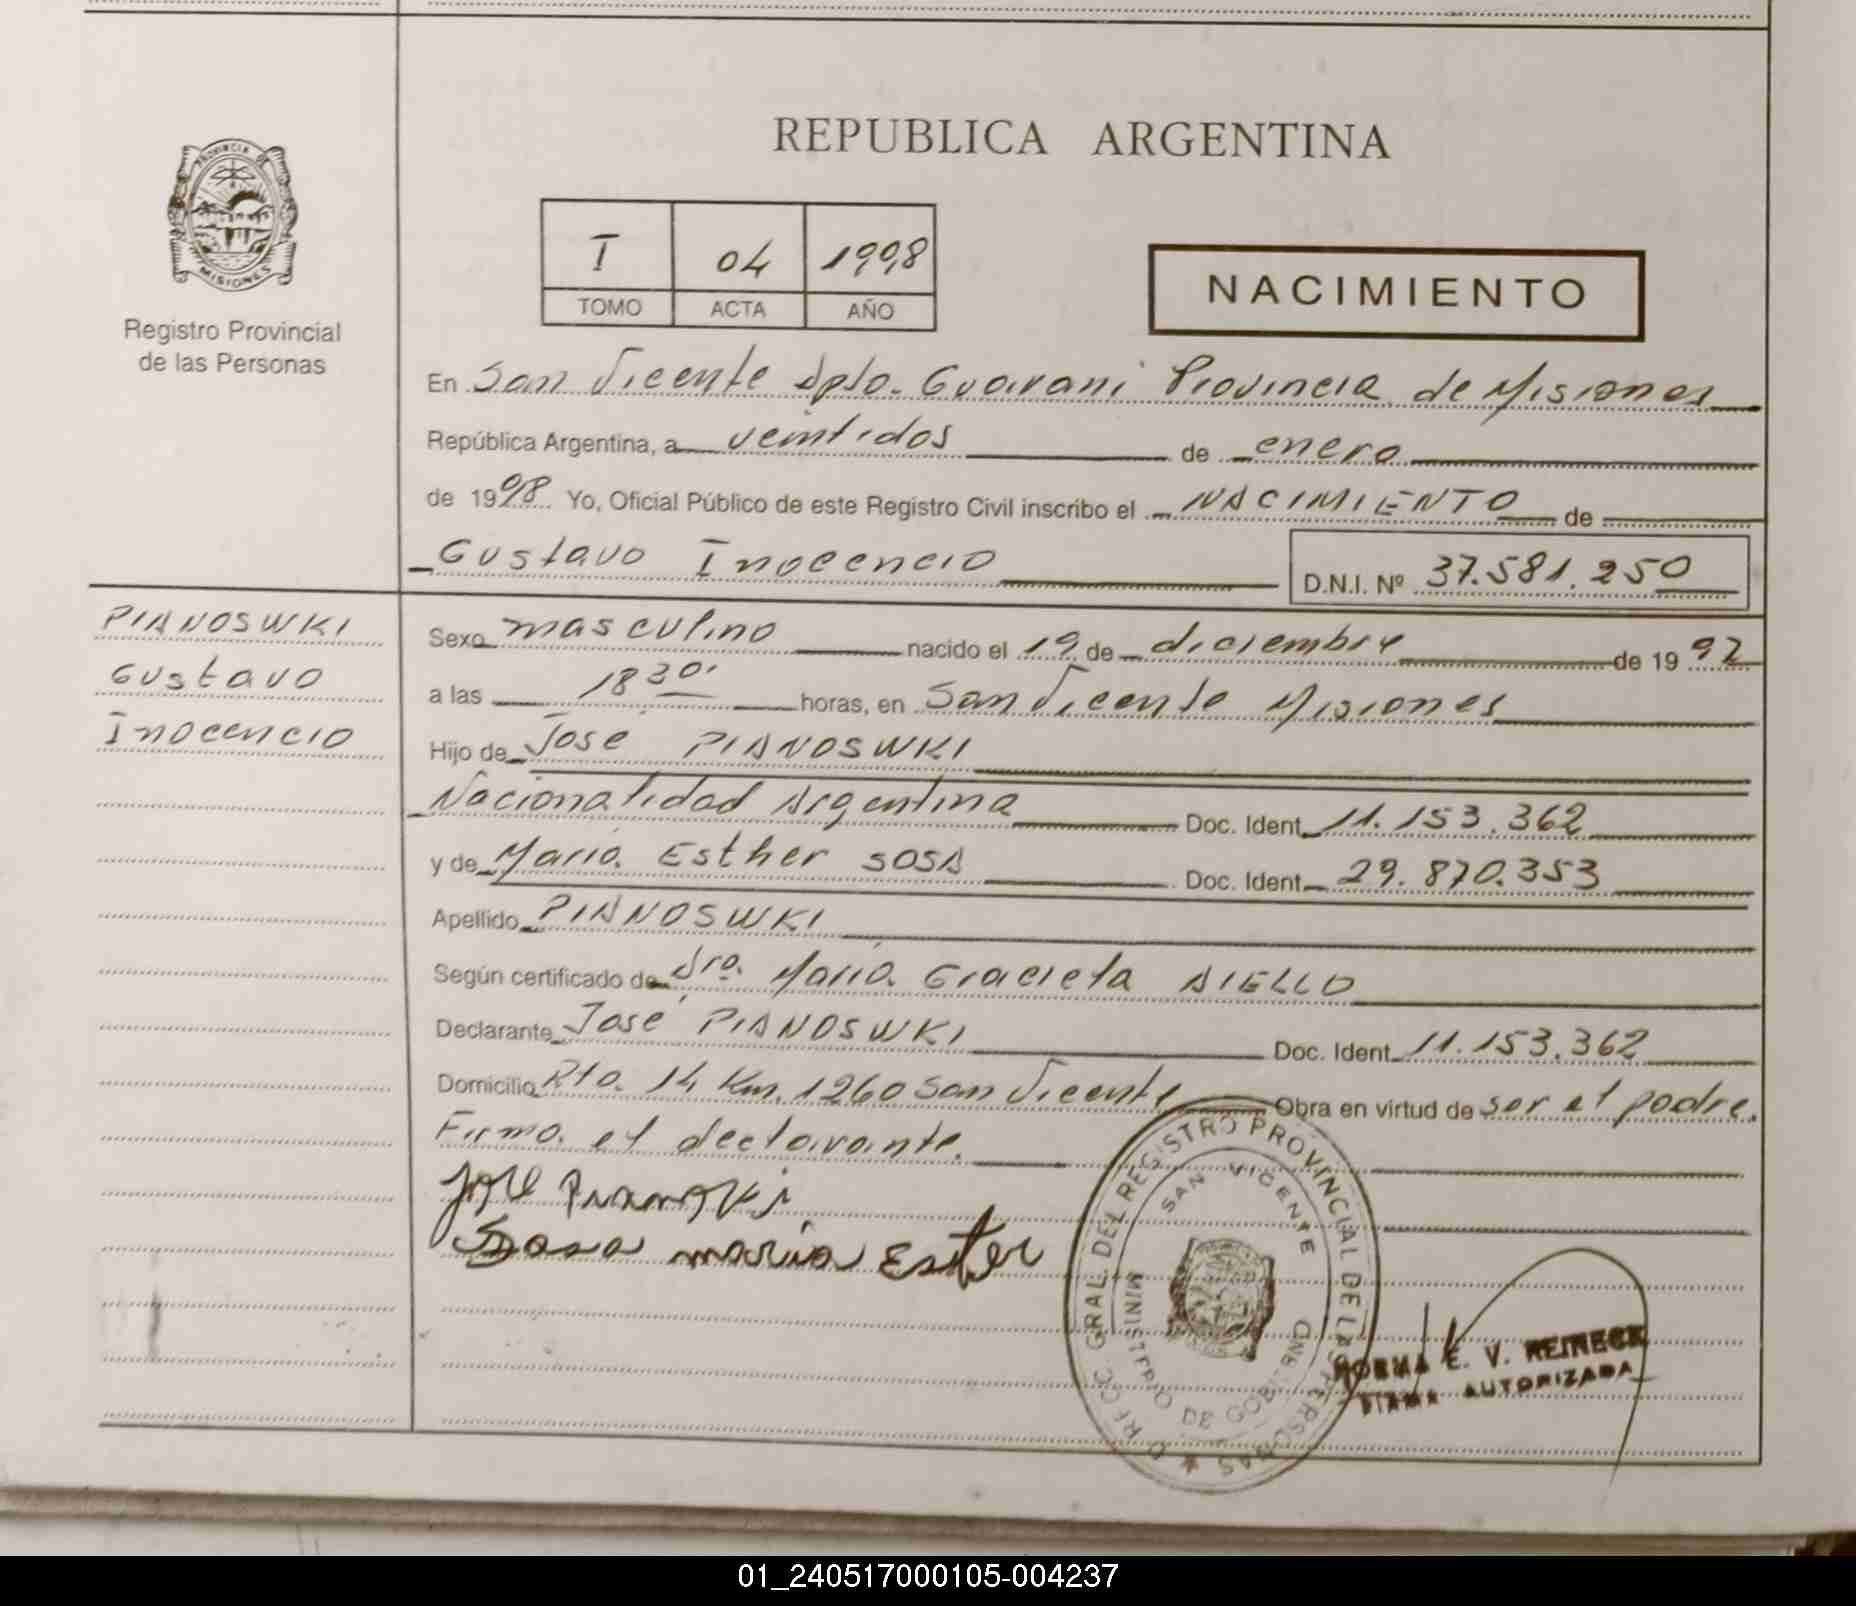 REPUBLICA ARGENTINA
PROVINCIA DE
MISIONES
Registro Provincial
de las Personas
I 04 1998
TOMO ACTA AÑO
NACIMIENTO
En San Vicente Dpto. Guarani Provincia de Misiones
República Argentina, a veintidos de enero
de 1998 Yo, Oficial Público de este Registro Civil inscribo el NACIMIENTO de
Gustavo Inocencio D.N.I. Nº 37.581.250
PIANOSWKI
Gustavo
Inocencio
Sexo masculino nacido el 19 de diciembre de 1992
a las 18 30' horas, en San Vicente Misiones
Hijo de José PIANOSWKI
Nacionalidad Argentina Doc. Ident 11.153.362
y de Maria Esther SOSA Doc. Ident 29.870.353
Apellido PIANOSWKI
Según certificado de Dra. Maria Graciela AIELLO
Declarante José PIANOSWKI Doc. Ident 11.153.362
Domicilio Rta. 14 Km. 1260 San Vicente Obra en virtud de ser el padre.
Firma el declarante.
José
Sosa maria Ester
GRAL. DEL REGISTRO PROVINCIAL DE LAS PERSONAS
SAN VICENTE
MINISTERIO DE GOBIERNO
NORMA E. V. REINECK
FIRMA AUTORIZADA
01_240517000105-004237